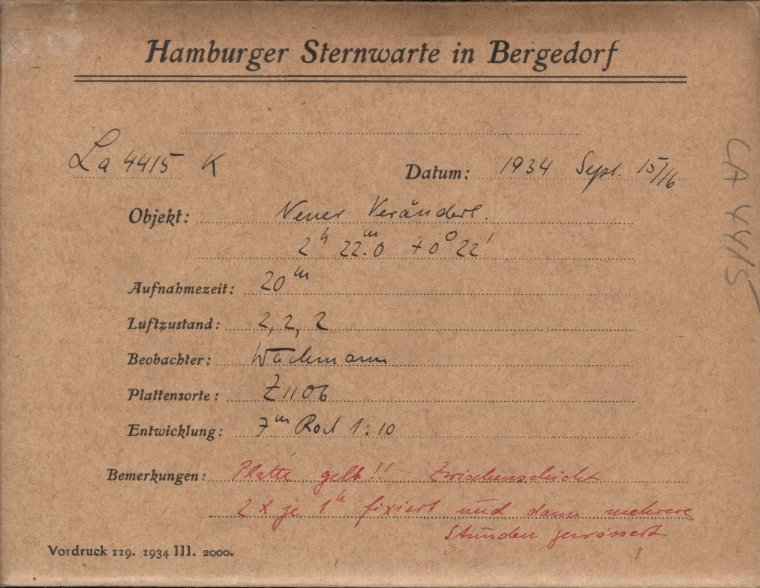 Hamburger Sternwarte in Bergedorf
La 4415 K
Datum: 1934 Sept. 15/16
Objekt: Neuer Veränderl.
2ʰ 22ᵐ.0 +0° 22'
Aufnahmezeit: 20ᵐ
Luftzustand: 2, 2, 2
Beobachter: Wachmann
Plattensorte: Z1106
Entwicklung: 7ᵐ Rod 1:10
Bemerkungen: Platte gelb!! Zwischenschicht
2 x je 1ʰ fixiert und dann mehrere
Stunden gewässert
Vordruck 119. 1934 III. 2000.
LA 4415